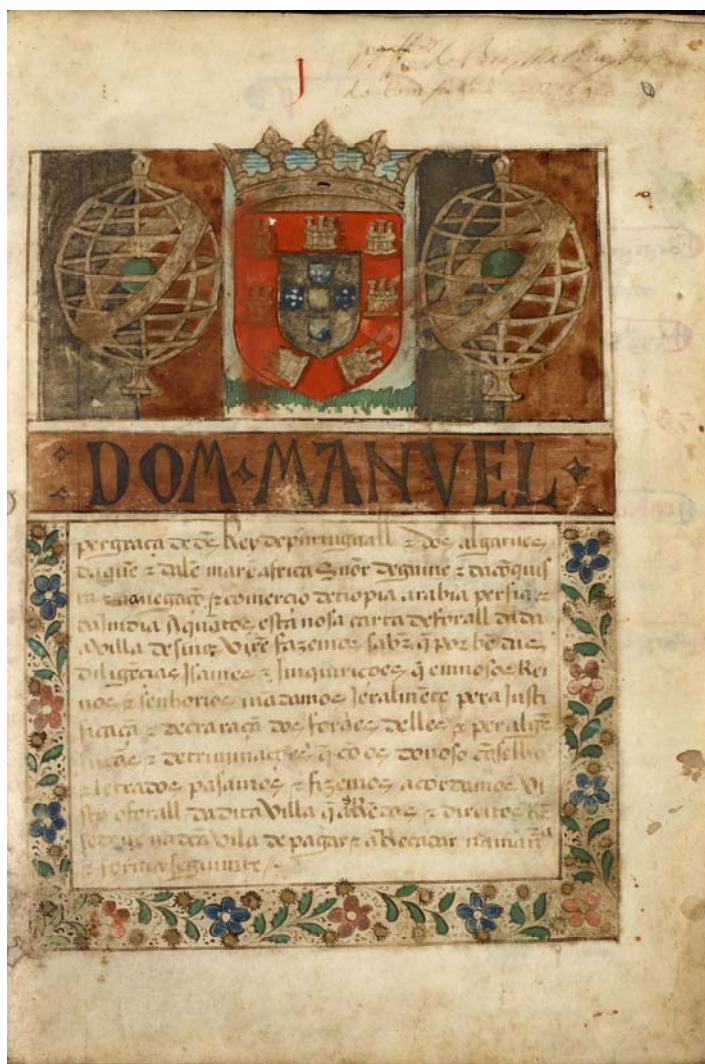 DOM MANVEL
per graça de dẽs Rey de purtuguall ⁊ dos algarues
daquẽ ⁊ dalẽ mar e africa Sñor de guine ⁊ da cõquis
ta ⁊ navegaçõ ⁊ comercio detiopia arabia persia ⁊
da India Aquãtos esta nosa carta de forall dada
a villa de sinis virẽ fazemos saber q̃ por bẽ das
diligẽcias Isames ⁊ Inquiriçoẽs q̃ em nosos Rei
nos ⁊ senhorios mãdamos Jeralmẽte pera Justi
ficaçã ⁊ decraraçã dos foraẽs delles ⁊ per algũas
⁊ detriminaçoẽs q̃ cõ os do noso cõselho
⁊ letrados pasamos ⁊ fizemos acordamos Vi
sto o forall da dita Villa q̃ as Rẽdas ⁊ direitos Re
na dita Vila de pagar ⁊ aRecadar na manr̃a
⁊ forma seguinte